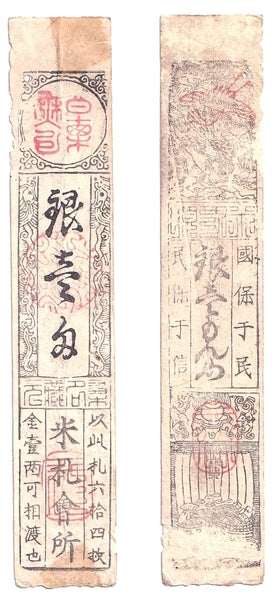 銀壹匁
桑名藏 
以此札六拾四枚
米札會所
金壹両可相渡也
國保于民
銀壹匁
民保于信